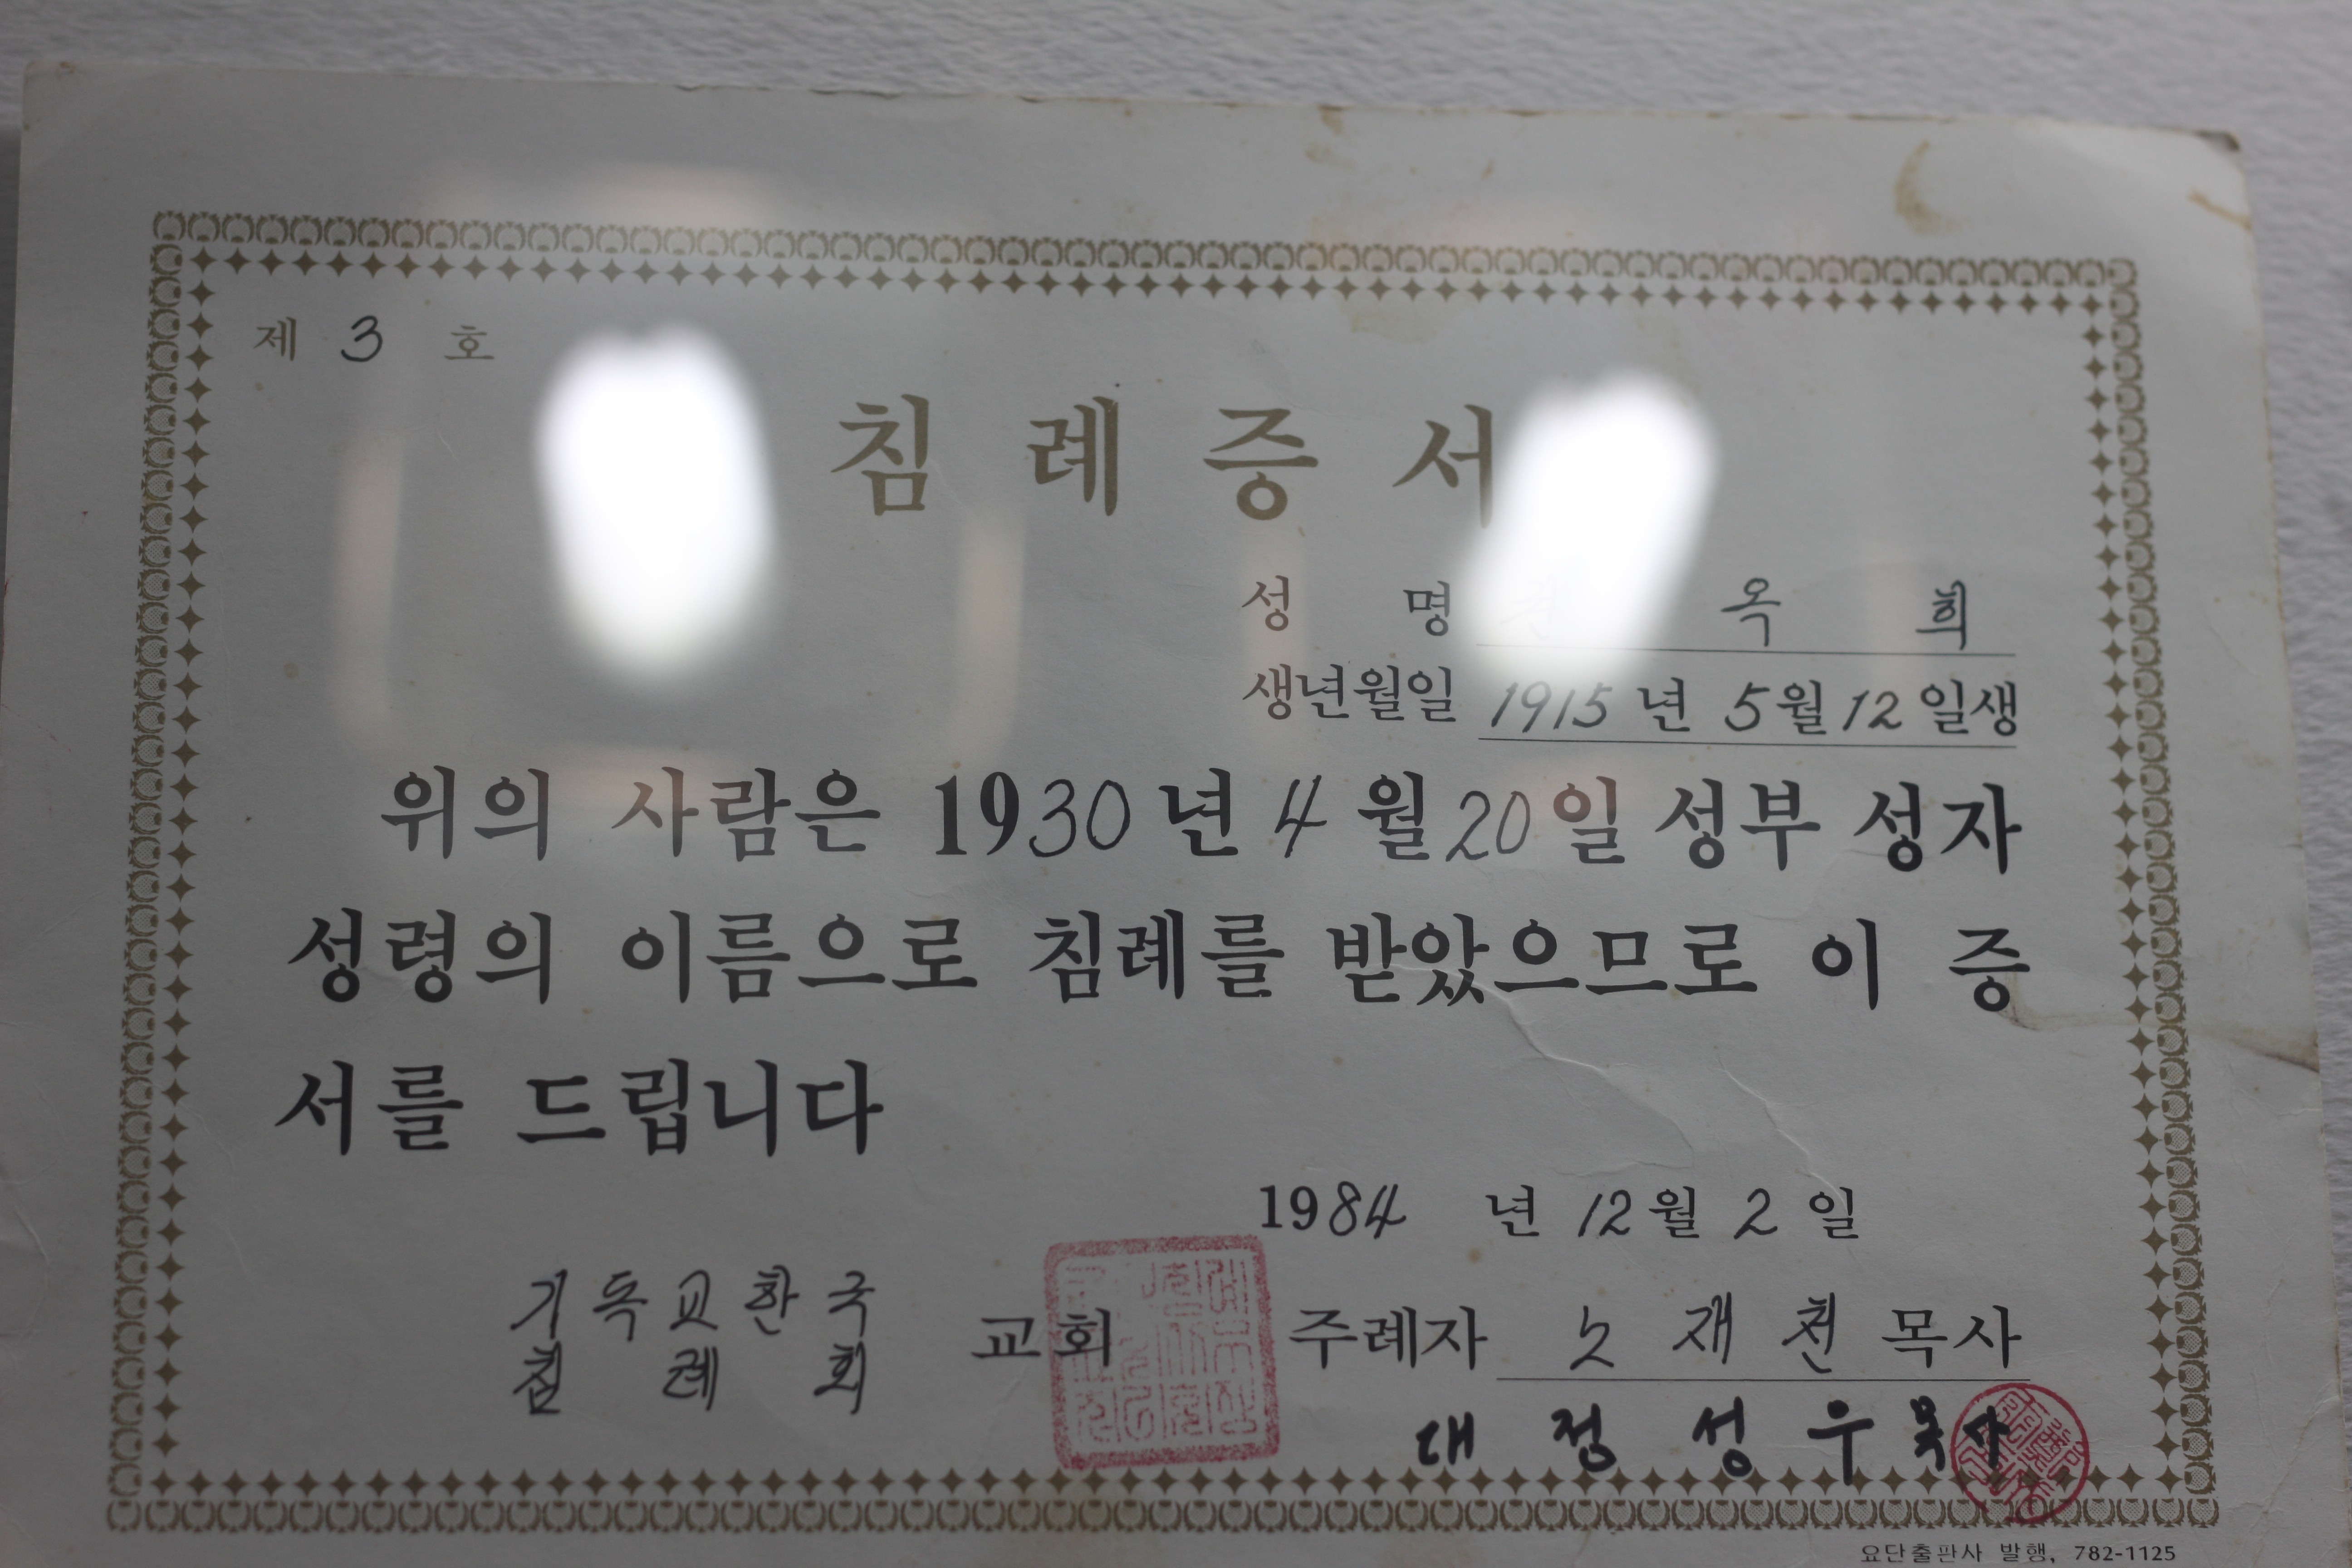 제 3 호
침 례 증 서
성 명 옥 희
생년월일 1915 년 5월 12 일생
위의 사람은 1930 년 4 월 20 일 성부 성자
성령의 이름으로 침례를 받았으므로 이 증
서를 드립니다
1984 년 12 월 2 일
기독교한국
침 례 회 교회 주례자 노 재 천 목사
대 정 성 우 목사
요단출판사 발행, 782-1125